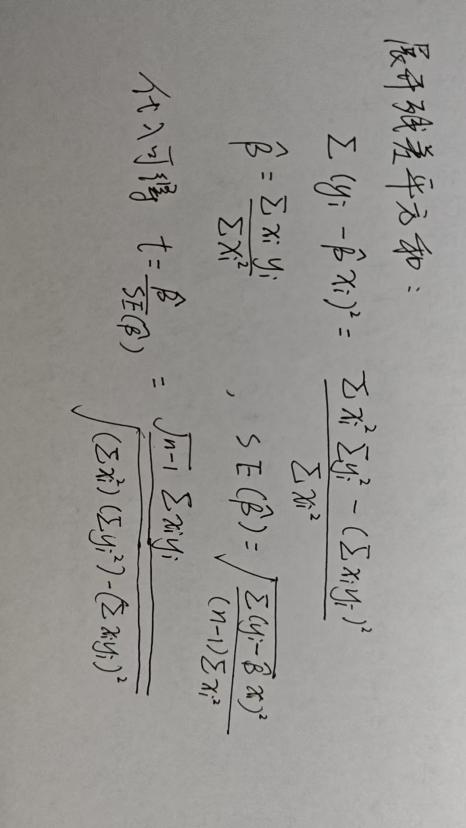 展开残差平方和：
Σ(yᵢ - β̂xᵢ)² = (Σxᵢ²Σyᵢ² - (Σxᵢyᵢ)²) / Σxᵢ²
β̂ = Σxᵢyᵢ / Σxᵢ² , SE(β̂) = √(Σ(yᵢ-β̂xᵢ)² / ((n-1)Σxᵢ²))
代入可得 t = β̂ / SE(β̂) = √(n-1) Σxᵢyᵢ / √((Σxᵢ²)(Σyᵢ²)-(Σxᵢyᵢ)²)